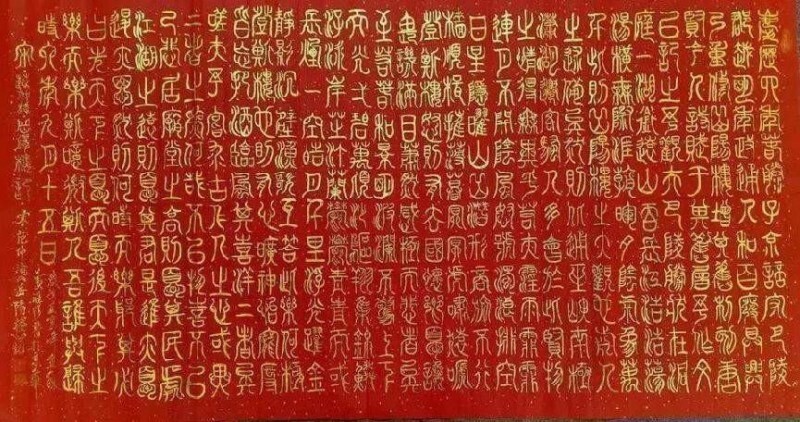 慶曆四年春滕子京謫守巴陵
郡越明年政通人和百廢具興
乃重修岳陽樓增其舊制刻唐
賢今人詩賦于其上屬予作文
以記之予觀夫巴陵勝狀在洞
庭一湖銜遠山吞長江浩浩湯
湯橫無際涯朝暉夕陰氣象萬
千此則岳陽樓之大觀也前人
之述備矣然則北通巫峽南極
瀟湘遷客騷人多會於此覽物
之情得無異乎若夫霪雨霏霏
連月不開陰風怒號濁浪排空
日星隱曜山岳潛形商旅不行
檣傾楫摧薄暮冥冥虎嘯猿啼
登斯樓也則有去國懷鄉憂讒
畏譏滿目蕭然感極而悲者矣
至若春和景明波瀾不驚上下
天光一碧萬頃沙鷗翔集錦鱗
游泳岸芷汀蘭郁郁青青而或
長煙一空皓月千里浮光躍金
靜影沉璧漁歌互答此樂何極
登斯樓也則有心曠神怡寵辱
皆忘把酒臨風其喜洋洋者矣
嗟夫予嘗求古仁人之心或異
二者之為何哉不以物喜不以
己悲居廟堂之高則憂其民處
江湖之遠則憂其君是進亦憂
退亦憂然則何時而樂耶其必
曰先天下之憂而憂後天下之
樂而樂歟噫微斯人吾誰與歸
時六年九月十五日